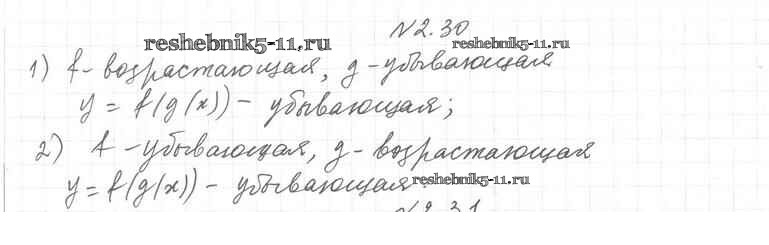 N2.30
reshebnik5-11.ru
reshebnik5-11.ru
1) f- возрастающая, g -убывающая
y = f(g(x)) - убывающая;
2) f -убывающая, g- возрастающая
y = f(g(x)) - убывающая
reshebnik5-11.ru